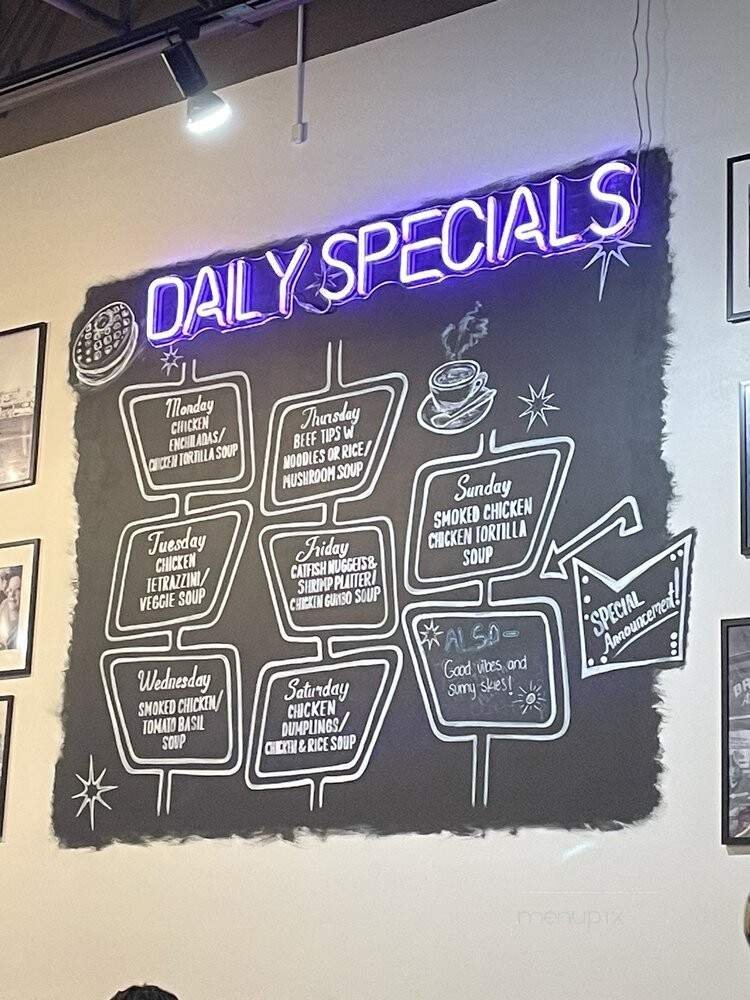 DAILY SPECIALS
Monday
CHICKEN
ENCHILADAS/
CHICKEN TORTILLA SOUP
Tuesday
CHICKEN
TETRAZZINI/
VEGGIE SOUP
Wednesday
SMOKED CHICKEN/
TOMATO BASIL
SOUP
Thursday
BEEF TIPS W
NOODLES OR RICE/
MUSHROOM SOUP
Friday
CATFISH NUGGETS &
SHRIMP PLATTER/
CHICKEN GUMBO SOUP
Saturday
CHICKEN
DUMPLINGS/
CHICKEN & RICE SOUP
Sunday
SMOKED CHICKEN
CHICKEN TORTILLA
SOUP
ALSO-
Good vibes and
sunny skies!
SPECIAL
Announcement!
menupix